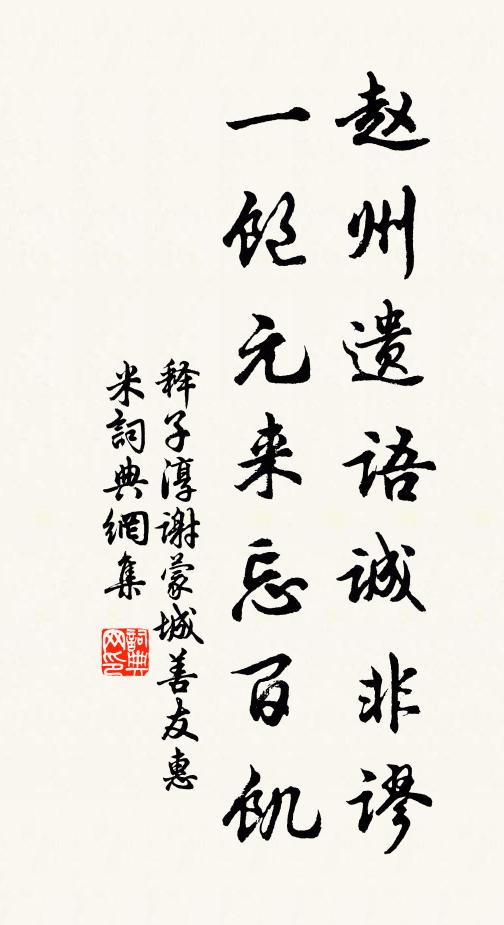 赵州遗語诚非謬
一飽元来忘百飢
释子淳謝蒙城善友惠
米詞典網集
詞典
网印